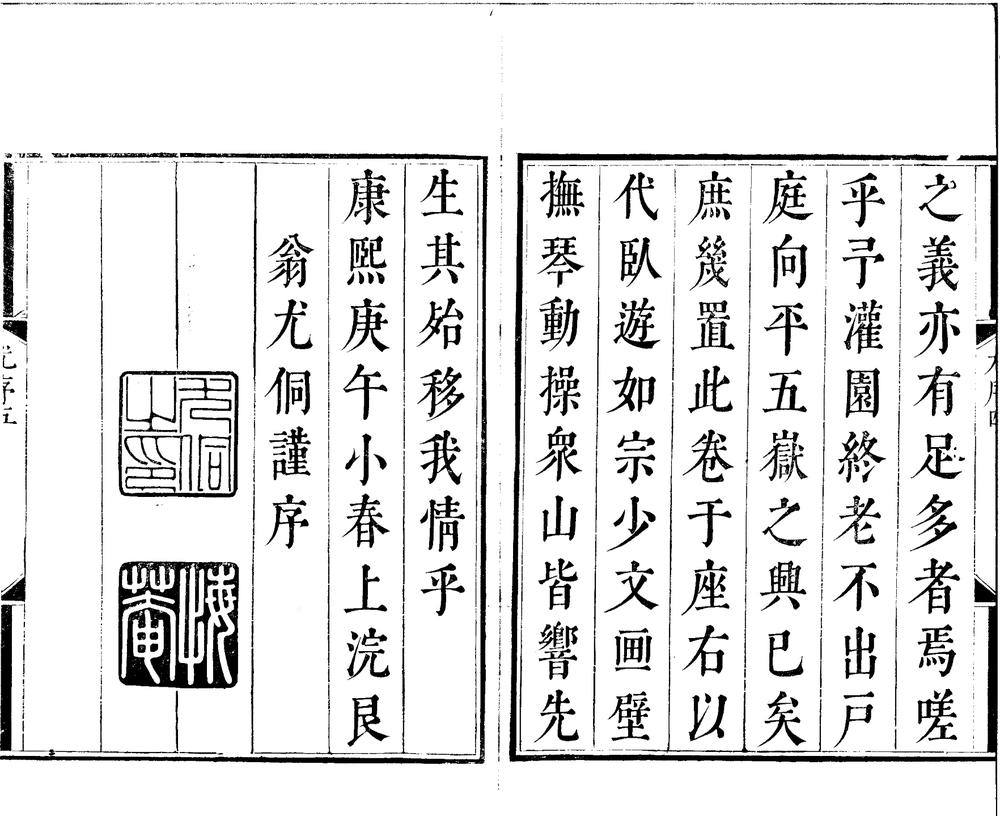 之義亦有足多者焉嗟
乎予灌園終老不出戸
庭向平五嶽之興已矣
庶幾置此卷于座右以
代臥遊如宗少文画壁
撫琴動操衆山皆響先
生其始移我情乎
康熙庚午小春上浣艮
翁尤侗謹序
尤侗之印
悔菴
尤序五